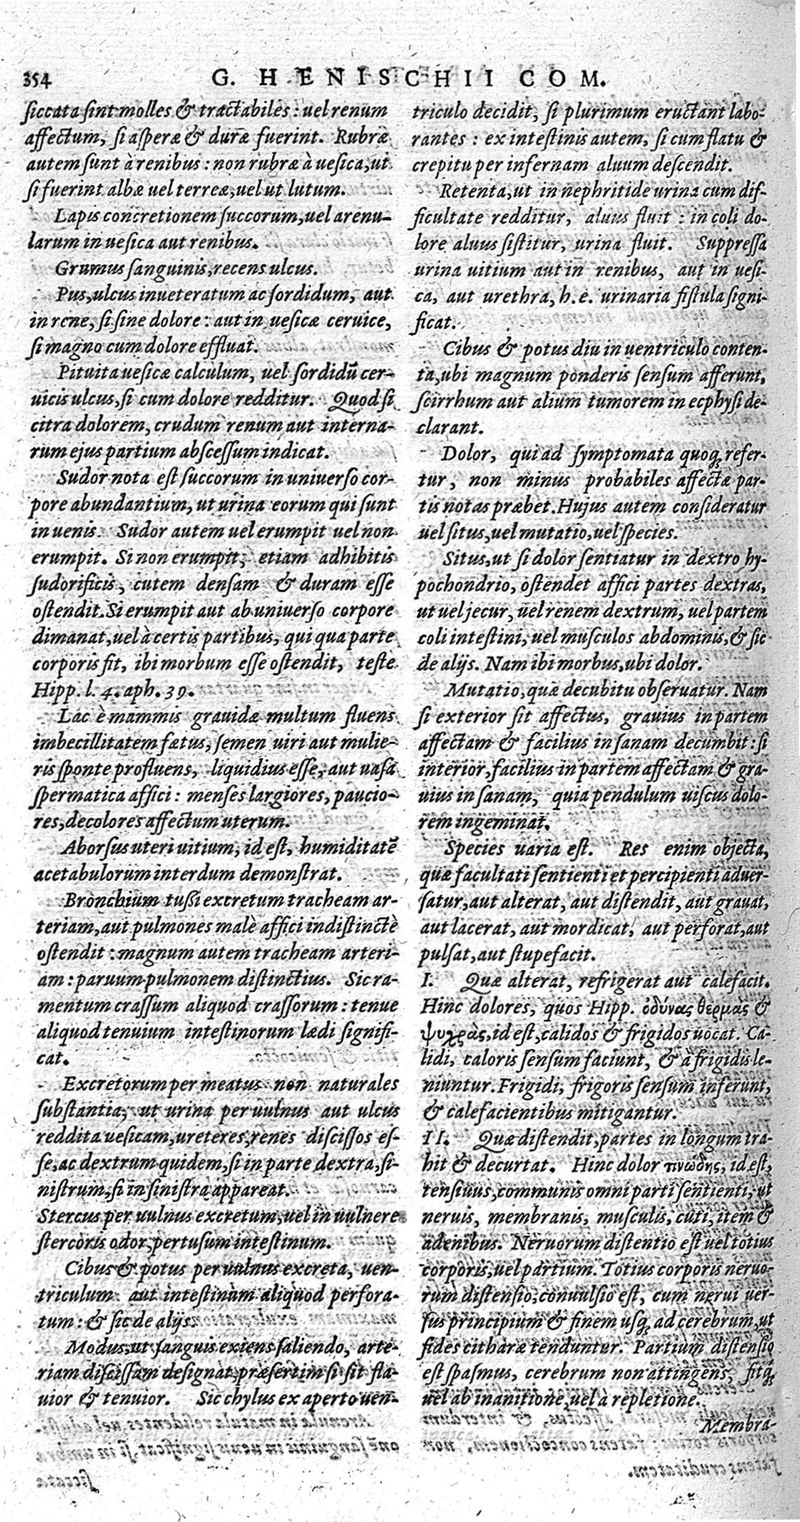 354
G. HENISCHII COM.
siccata sint molles & tractabiles : uel renum
affectum, si asperæ & duræ fuerint. Rubræ
autem sunt à renibus : non rubræ à uesica, ut
si fuerint albæ uel terreæ, uel ut lutum.
Lapis concretionem succorum, uel arenu-
larum in uesica aut renibus.
Grumus sanguinis, recens ulcus.
Pus, ulcus inueteratum ac sordidum, aut
in rene, si sine dolore : aut in uesicæ ceruice,
si magno cum dolore effluat.
Pituita uesicæ calculum, uel sordidũ cer-
uicis ulcus, si cum dolore redditur. Quod si
citra dolorem, crudum renum aut interna-
rum ejus partium abscessum indicat.
Sudor nota est succorum in uniuerso cor-
pore abundantium, ut urina eorum qui sunt
in uenis. Sudor autem uel erumpit uel non
erumpit. Si non erumpit, etiam adhibitis
sudorificis, cutem densam & duram esse
ostendit. Si erumpit aut ab uniuerso corpore
dimanat, uel à certis partibus, qui qua parte
corporis fit, ibi morbum esse ostendit, teste
Hipp. l. 4. aph. 39.
Lac è mammis grauidæ multum fluens
imbecillitatem fœtus, semen uiri aut mulie-
ris sponte profluens, liquidius esse, aut uasa
spermatica affici : menses largiores, paucio-
res, decolores affectum uterum.
Aborsus uteri uitium, id est, humiditatẽ
acetabulorum interdum demonstrat.
Bronchium tussi excretum tracheam ar-
teriam, aut pulmones malè affici indistinctè
ostendit : magnum autem tracheam arteri-
am : paruum pulmonem distinctius. Sic ra-
mentum crassum aliquod crassorum : tenue
aliquod tenuium intestinorum lædi signifi-
cat.
Excretorum per meatus non naturales
substantia, ut urina per uulnus aut ulcus
reddita uesicam, ureteres, renes discissos es-
se, ac dextrum quidem, si in parte dextra, si-
nistrum, si in sinistra appareat.
Stercus per uulnus excretum, uel in uulnere
stercoris odor, pertusum intestinum.
Cibus & potus per uulnus excreta, uen-
triculum aut intestinum aliquod perfora-
tum : & sic de alijs.
Modus, ut sanguis exiens saliendo, arte-
riam discissam designat, præsertim si sit fla-
uior & tenuior. Sic chylus ex aperto uen-
triculo decidit, si plurimum eructant labo-
rantes : ex intestinis autem, si cum flatu &
crepitu per infernam aluum descendit.
Retenta, ut in nephritide urina cum dif-
ficultate redditur, aluus fluit : in coli do-
lore aluus sistitur, urina fluit. Suppressa
urina uitium aut in renibus, aut in uesi-
ca, aut urethra, h. e. urinaria fistula signi-
ficat.
Cibus & potus diu in uentriculo conten-
ta, ubi magnum ponderis sensum afferunt,
scirrhum aut alium tumorem in ecphysi de-
clarant.
Dolor, qui ad symptomata quoq; refer-
tur, non minus probabiles affectæ par-
tis notas præbet. Hujus autem consideratur
uel situs, uel mutatio, uel species.
Situs, ut si dolor sentiatur in dextro hy-
pochondrio, ostendet affici partes dextras,
ut uel jecur, uel renem dextrum, uel partem
coli intestini, uel musculos abdominis, & sic
de alijs. Nam ibi morbus, ubi dolor.
Mutatio, quæ decubitu obseruatur. Nam
si exterior sit affectus, grauius in partem
affectam & facilius in sanam decumbit : si
interior, facilius in partem affectam & gra-
uius in sanam, quia pendulum uiscus dolo-
rem ingeminat.
Species uaria est. Res enim objecta,
quæ facultati sentienti et percipienti aduer-
satur, aut alterat, aut distendit, aut grauat,
aut lacerat, aut mordicat, aut perforat, aut
pulsat, aut stupefacit.
I. Quæ alterat, refrigerat aut calefacit.
Hinc dolores, quos Hipp. ὀδύνας θερμὰς &
ψυχρὰς, id est, calidos & frigidos uocat. Ca-
lidi, caloris sensum faciunt, & à frigidis le-
niuntur. Frigidi, frigoris sensum inferunt,
& calefacientibus mitigantur.
II. Quæ distendit, partes in longum tra-
hit & decurtat. Hinc dolor τινώδης, id est,
tensiuus, communis omni parti sentienti, ut
neruis, membranis, musculis, cuti, item &
adenibus. Neruorum distentio est uel totius
corporis, uel partium. Totius corporis neruo-
rum distensio, conuulsio est, cum nerui uer-
sus principium & finem usq; ad cerebrum, ut
fides citharæ tenduntur. Partium distensio
est spasmus, cerebrum non attingens, fitq;
uel ab inanitione, uel à repletione.
Membra-